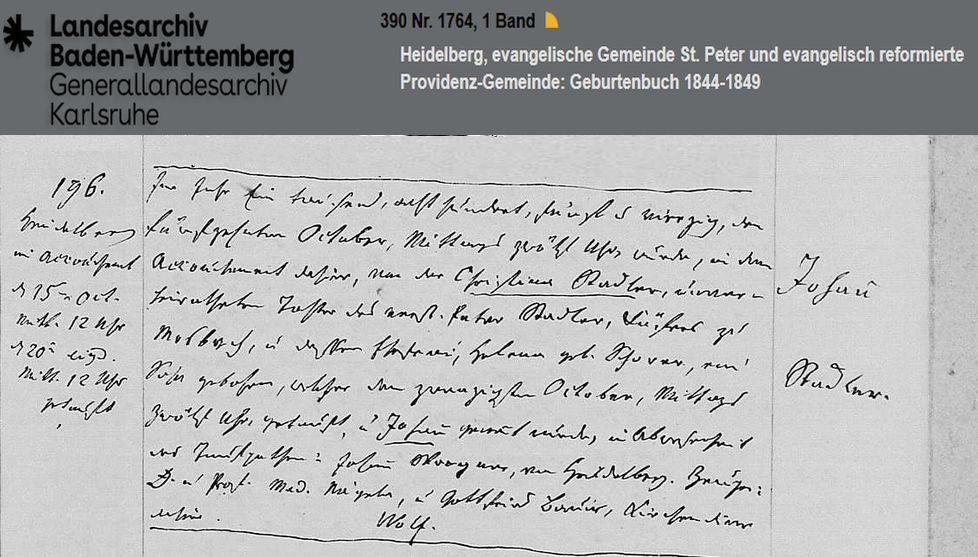 Landesarchiv
Baden-Württemberg
Generallandesarchiv
Karlsruhe
390 Nr. 1764, 1 Band
Heidelberg, evangelische Gemeinde St. Peter und evangelisch reformierte
Providenz-Gemeinde: Geburtenbuch 1844-1849
196.
Heidelberg
im Accouchement
d 15n Oct.
Mitt. 12 Uhr
d 20n
Mitt. 12 Uhr
getauft
Im Jahr Ein tausend, acht hundert, fünf u vierzig, den
fünfzehnten October, Mittags zwölf Uhr wurde, in dem
Accouchement dahier, von der Christina Stadler, unver-
heiratheten Tochter des verst. Peter Stadler, zu
Mosbach, u dessen Ehefrau, Helena geb. ein
Sohn geboren, welcher den zwanzigsten October, Mittags
zwölf Uhr, getauft, u Johann genannt wurde, in Abwesenheit
des Taufpathen: Johann von Heidelberg. Zeugen:
D. u Prof. Med. Nägele, u Gottfried Kirchendiener
dahier.
Wolf.
Johann
Stadler.